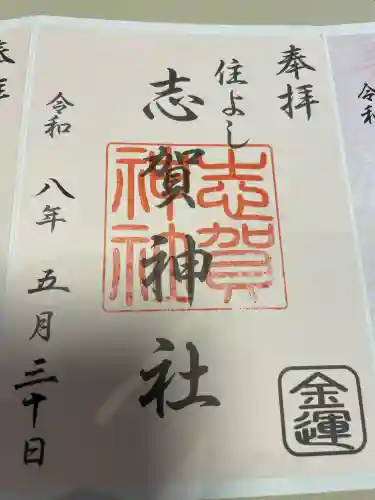 奉拝
住よし
志賀神社
志賀
神社
金運
令和八年五月三十日
令和